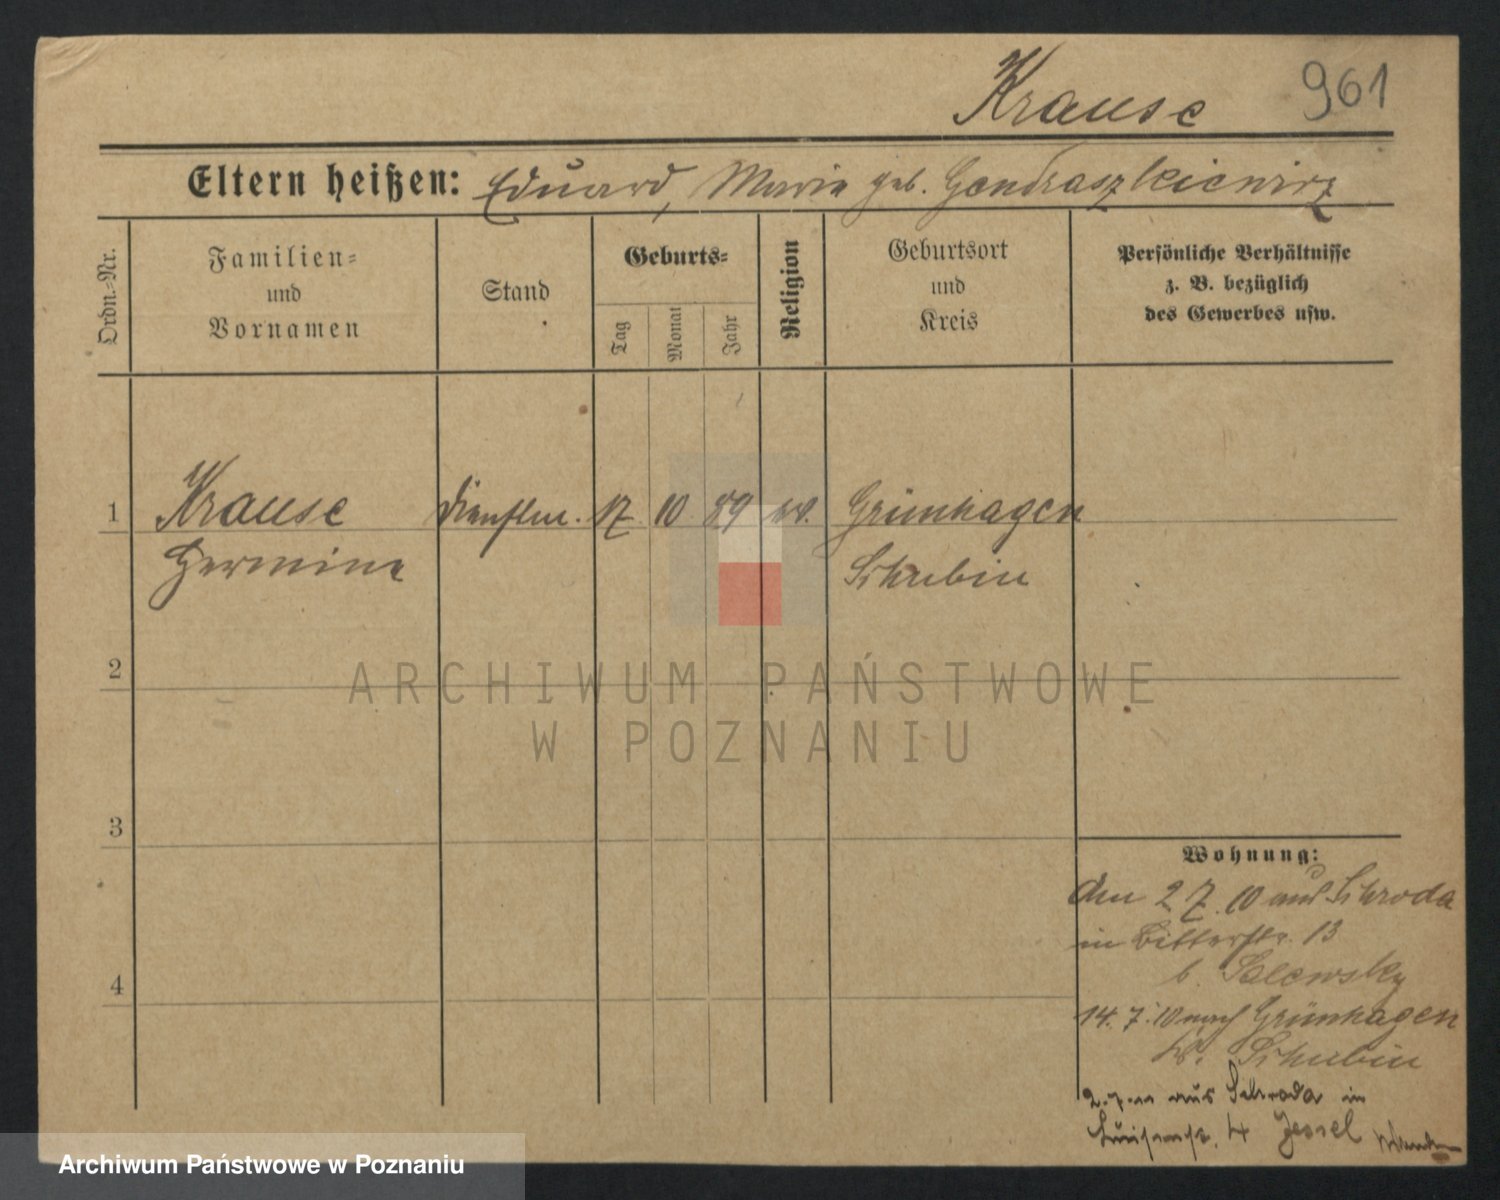 Krause 961
Eltern heißen: Eduard, Maria geb. Gondraszkiewicz
Ordn.-Nr.
Familien-
und
Vornamen
Stand
Geburts-
Tag
Monat
Jahr
Religion
Geburtsort
und
Kreis
Persönliche Verhältnisse
z. B. bezüglich
des Gewerbes usw.
1 Krause Dienstm. 17 10 89 Grünhagen
Hermine Schubin
2
3
4
Wohnung:
den 2 7. 10 aus Schroda
in Ritterstr. 13
b. Salewsky
14. 7. 10 nach Grünhagen
Schubin
aus Schroda in
4
ARCHIWUM PAŃSTWOWE
W POZNANIU
Archiwum Państwowe w Poznaniu